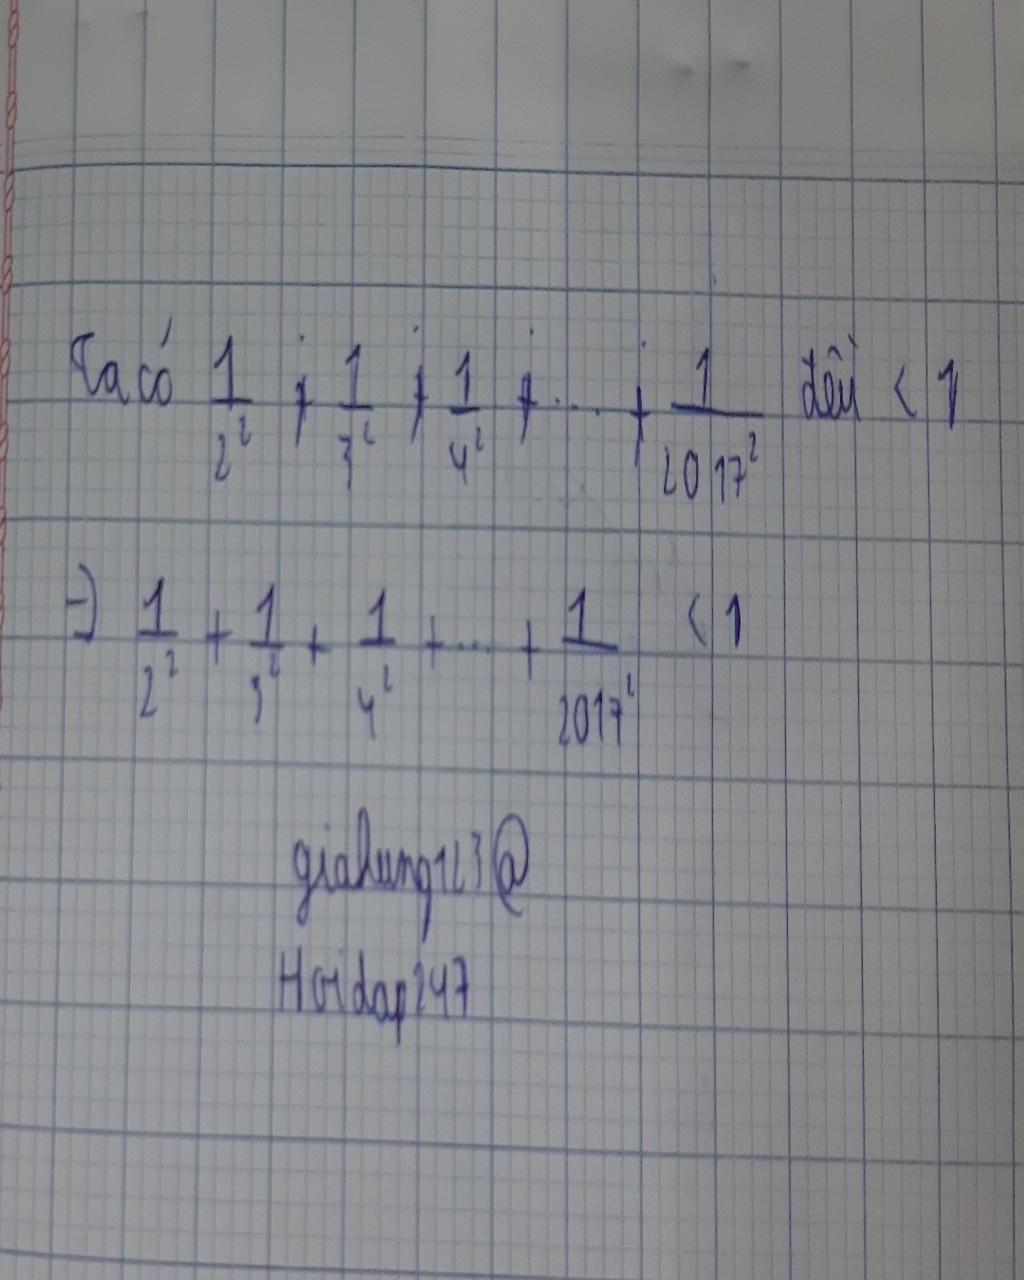 Ta có 1/2² ; 1/3² ; 1/4² ; .... ; 1/2017² đều < 1
=) 1/2² + 1/3² + 1/4² + .... + 1/2017² < 1
giahung123@
Hoidap247